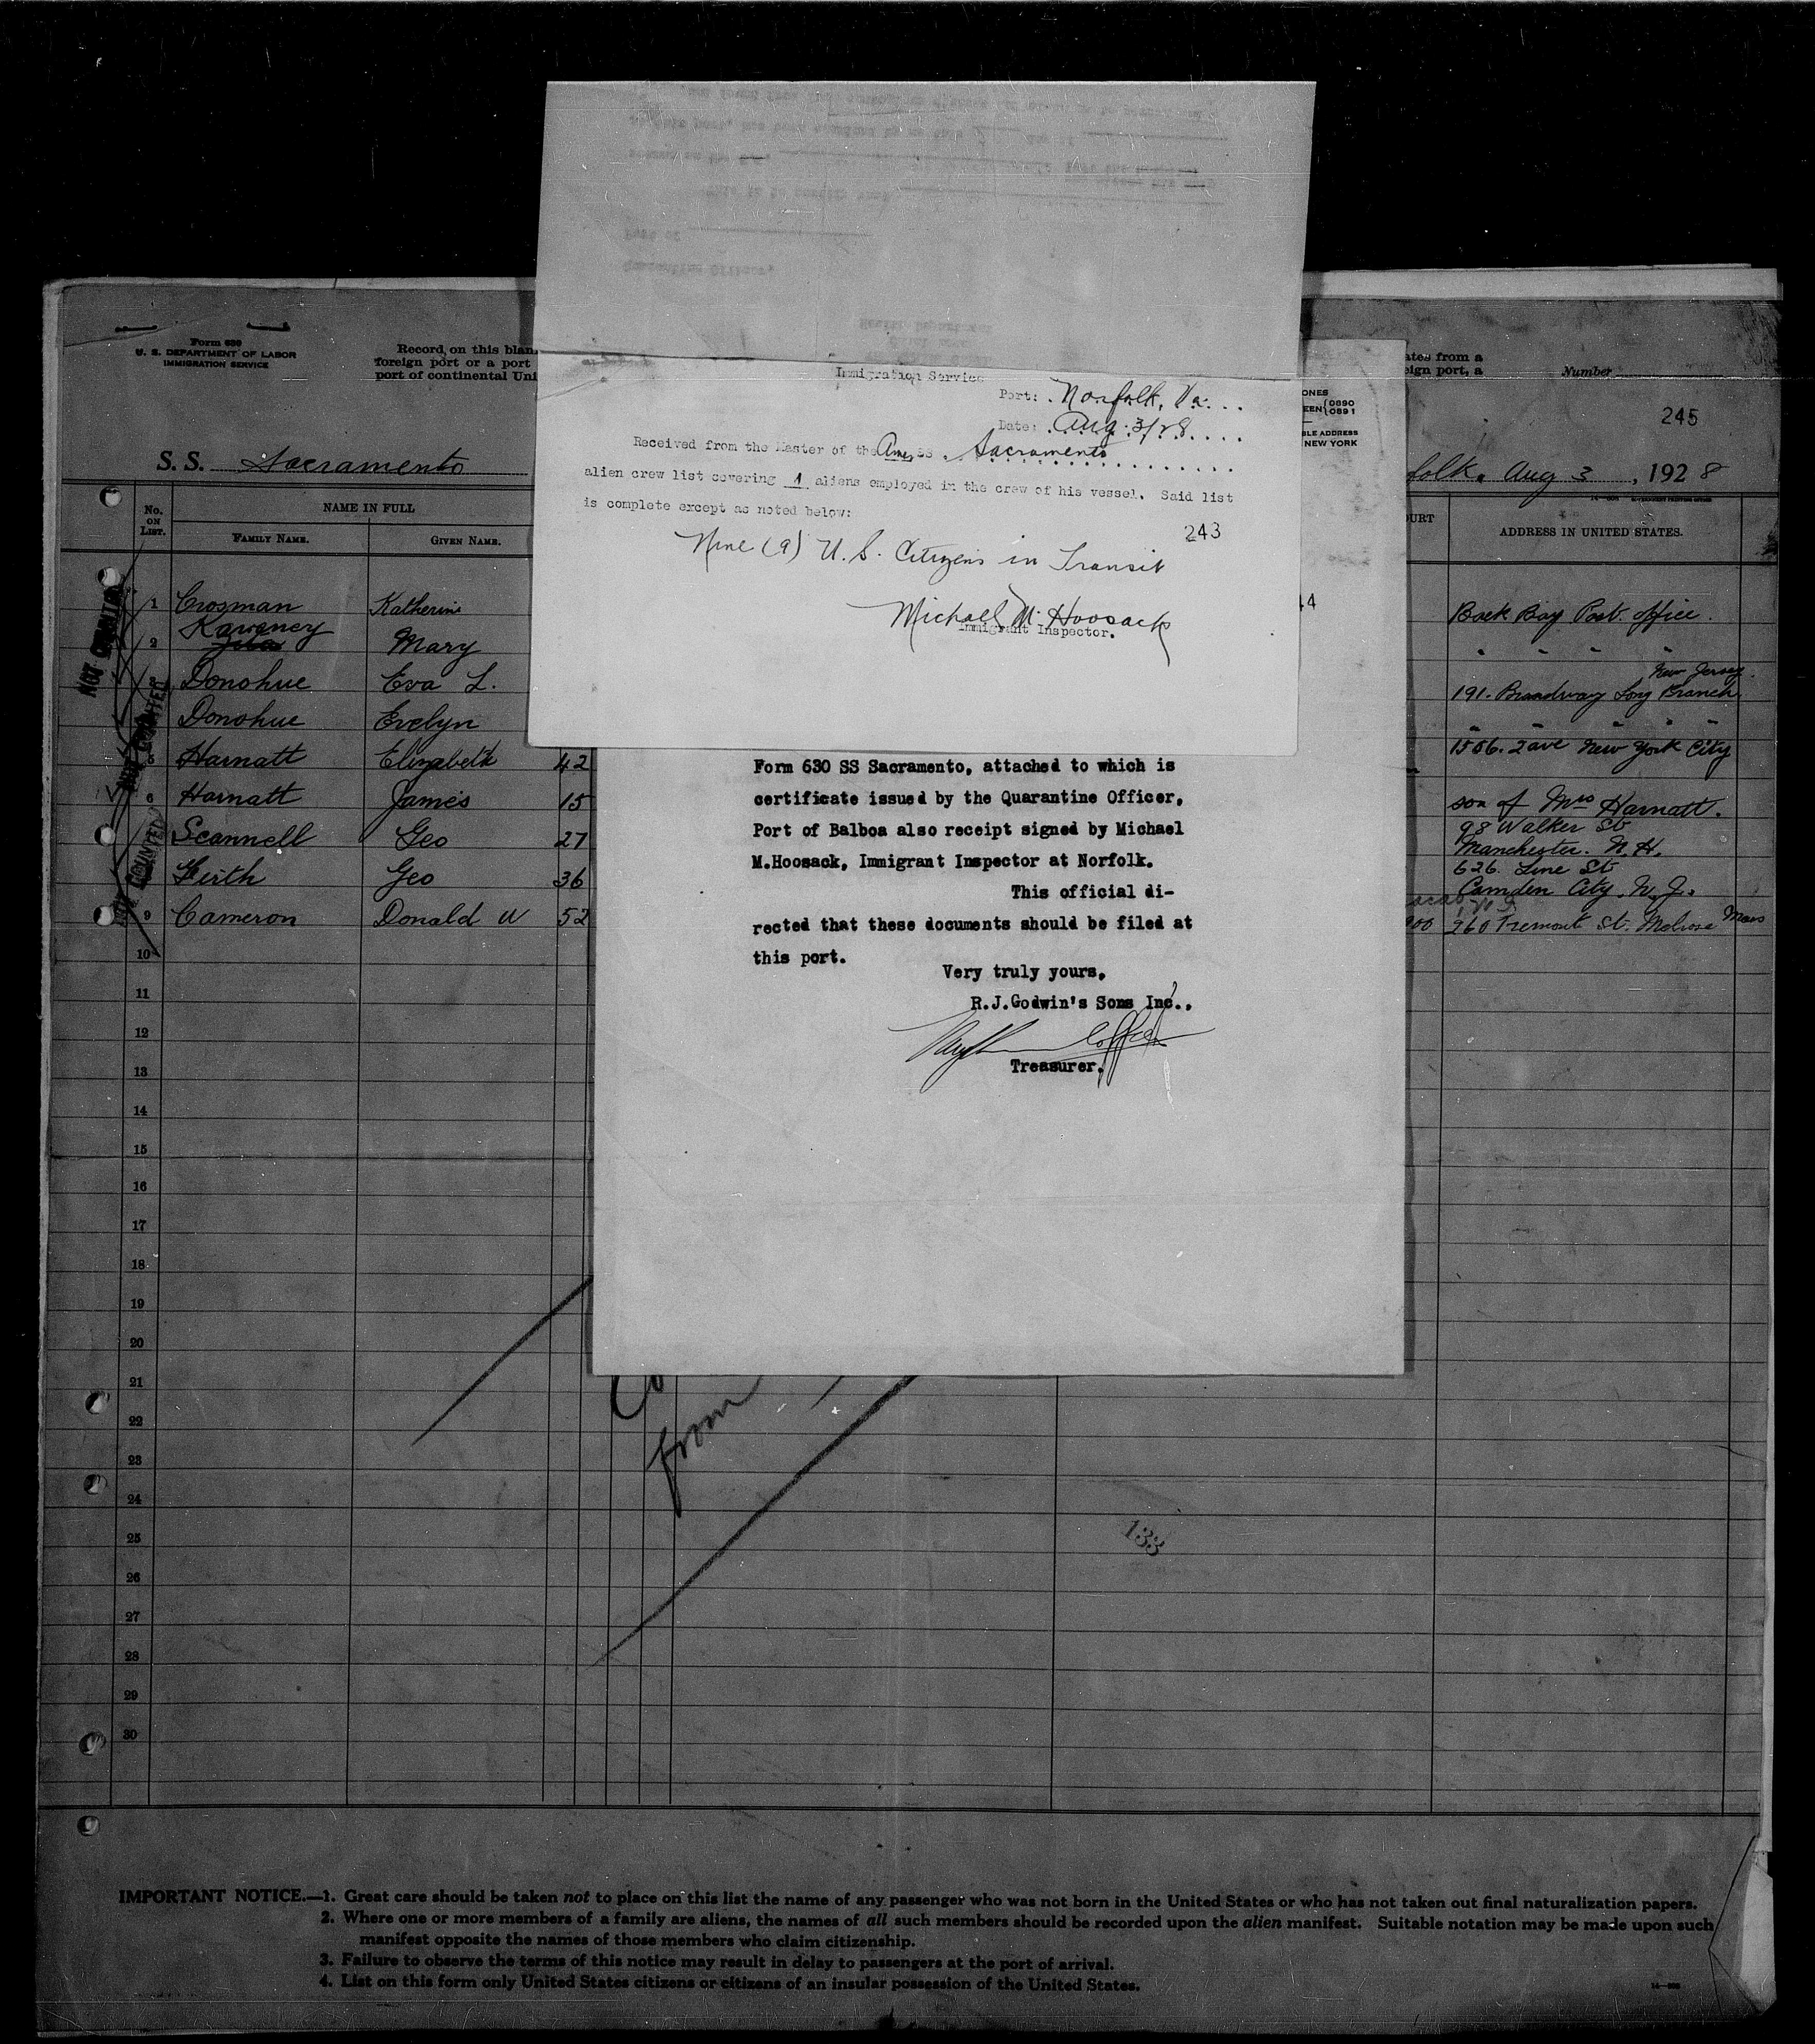 Form 630
U. S. DEPARTMENT OF LABOR
IMMIGRATION SERVICE
Record on this blan
foreign port or a port
port of continental Uni
ates from a
eign port, a
Number
245
S. S. Sacramento
folk. Aug 3, 1928
ONES
EEN 0890
0891
BLE ADDRESS
NEW YORK
Immigration Service
Port: Norfolk, Va.
Date: Aug. 3/28
Received from the Master of the Am. SS. Sacramento
alien crew list covering 1 aliens employed in the crew of his vessel. Said list
is complete except as noted below:
243
Nine (9) U. S. Citizens in Transit
Michael M. Hoosack
Immigrant Inspector.
44
Form 630 SS Sacramento, attached to which is
certificate issued by the Quarantine Officer,
Port of Balboa also receipt signed by Michael
M.Hoosack, Immigrant Inspector at Norfolk.
This official di-
rected that these documents should be filed at
this port.
Very truly yours,
R.J.Godwin's Sons Inc.,
Treasurer.
No. ON LIST.
NAME IN FULL
FAMILY NAME. GIVEN NAME.
OURT
ADDRESS IN UNITED STATES.
1 Crosman Katherine Back Bay Post. office.
2 Mary " " " "
3 Donohue Eva L. 191. Broadway Long Branch New Jersey.
Donohue Evelyn " " " " "
5 Harnatt Elizabeth 42 1506. 2 ave New York City
6 Harnatt James 15 son of Mrs Harnatt.
Scannell Geo 27 98 Walker St
Manchester. N. H.
Geo 36 626. Line St
Camden City. N. J.
9 Cameron Donald W 52 900 260 Tremont St. Melrose Mass
10
11
12
13
14
15
16
17
18
19
20
21
22
23
24
25
26
27
28
29
30
NOT COUNTED
NOT COUNTED
from
188
IMPORTANT NOTICE.—1. Great care should be taken not to place on this list the name of any passenger who was not born in the United States or who has not taken out final naturalization papers.
2. Where one or more members of a family are aliens, the names of all such members should be recorded upon the alien manifest. Suitable notation may be made upon such
manifest opposite the names of those members who claim citizenship.
3. Failure to observe the terms of this notice may result in delay to passengers at the port of arrival.
4. List on this form only United States citizens or citizens of an insular possession of the United States.